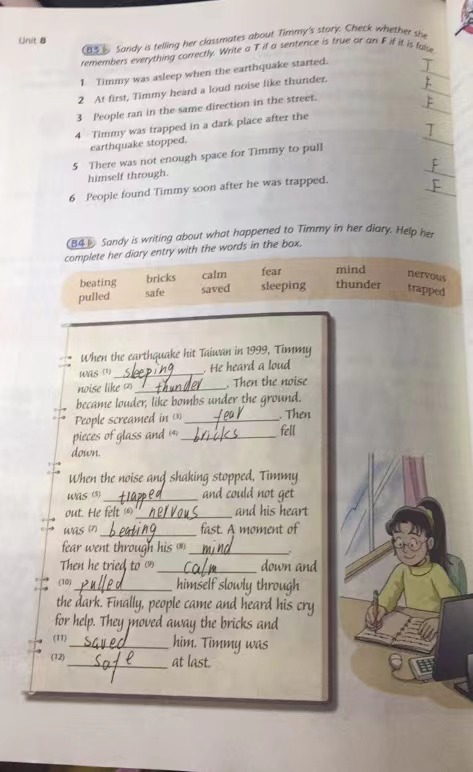 Unit 8
B3 b Sandy is telling her classmates about Timmy's story. Check whether she
remembers everything correctly. Write a T if a sentence is true or an F if it is false.
1 Timmy was asleep when the earthquake started. T
2 At first, Timmy heard a loud noise like thunder. F
3 People ran in the same direction in the street. F
4 Timmy was trapped in a dark place after the
earthquake stopped. T
5 There was not enough space for Timmy to pull
himself through. F
6 People found Timmy soon after he was trapped. F
B4 Sandy is writing about what happened to Timmy in her diary. Help her
complete her diary entry with the words in the box.
beating bricks calm fear mind nervous
pulled safe saved sleeping thunder trapped
When the earthquake hit Taiwan in 1999, Timmy
was (1) sleeping. He heard a loud
noise like (2) thunder. Then the noise
became louder, like bombs under the ground.
People screamed in (3) fear. Then
pieces of glass and (4) bricks fell
down.
When the noise and shaking stopped, Timmy
was (5) trapped and could not get
out. He felt (6) nervous and his heart
was (7) beating fast. A moment of
fear went through his (8) mind.
Then he tried to (9) calm down and
(10) pulled himself slowly through
the dark. Finally, people came and heard his cry
for help. They moved away the bricks and
(11) saved him. Timmy was
(12) safe at last.